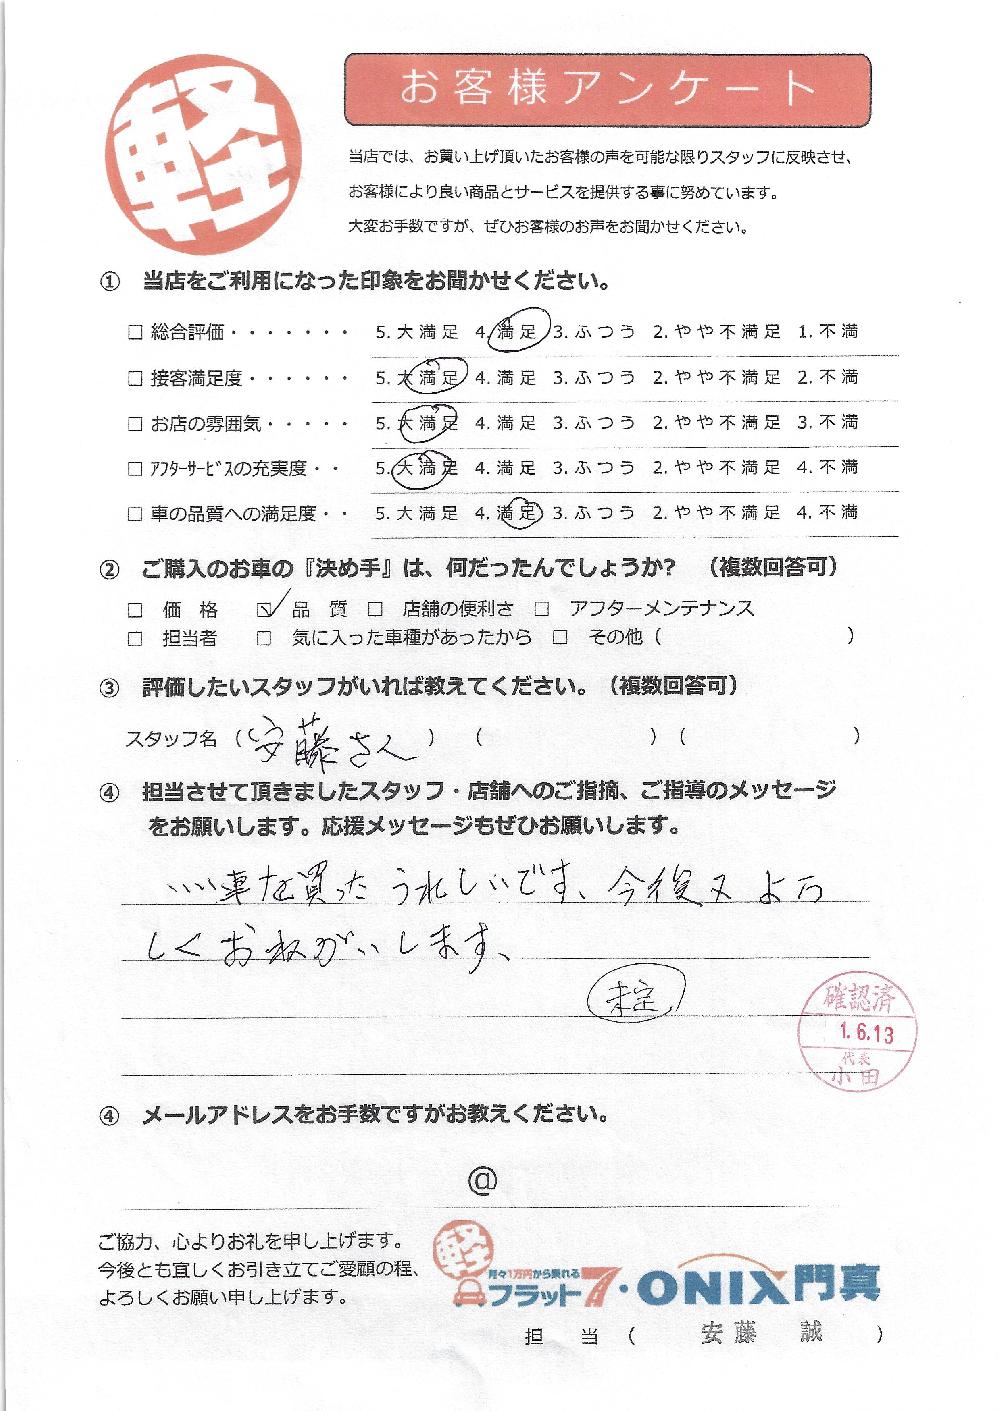 軽
お客様アンケート
当店では、お買い上げ頂いたお客様の声を可能な限りスタッフに反映させ、
お客様により良い商品とサービスを提供する事に努めています。
大変お手数ですが、ぜひお客様のお声をお聞かせください。
① 当店をご利用になった印象をお聞かせください。
□ 総合評価・・・・・・・ 5.大満足 4.満足 3.ふつう 2.やや不満足 1.不満
□ 接客満足度・・・・・・ 5.大満足 4.満足 3.ふつう 2.やや不満足 2.不満
□ お店の雰囲気・・・・・ 5.大満足 4.満足 3.ふつう 2.やや不満足 3.不満
□ ｱﾌﾀｰｻｰﾋﾞｽの充実度・・ 5.大満足 4.満足 3.ふつう 2.やや不満足 4.不満
□ 車の品質への満足度・・ 5.大満足 4.満足 3.ふつう 2.やや不満足 4.不満
② ご購入のお車の『決め手』は、何だったんでしょうか? （複数回答可）
□ 価格 ☑ 品質 □ 店舗の便利さ □ アフターメンテナンス
□ 担当者 □ 気に入った車種があったから □ その他（ ）
③ 評価したいスタッフがいれば教えてください。（複数回答可）
スタッフ名（安藤さん）（ ）（ ）
④ 担当させて頂きましたスタッフ・店舗へのご指摘、ご指導のメッセージ
をお願いします。応援メッセージもぜひお願いします。
いい車を買ったうれしいです、今後又よろ
しくおねがいします、
確認済
1.6.13
代表
小田
④ メールアドレスをお手数ですがお教えください。
@
ご協力、心よりお礼を申し上げます。
今後とも宜しくお引き立てご愛顧の程、
よろしくお願い申し上げます。
軽
月々1万円から乗れる
フラット7・ONIX門真
担当（ 安藤 誠 ）